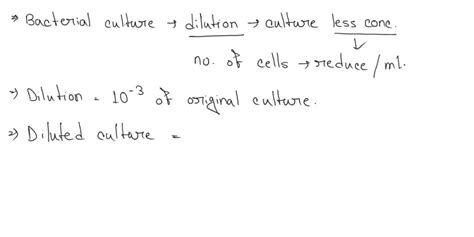 ⇒ Bacterial culture → dilution → culture less conc.
↓
no. of cells → reduce / ml.
→ Dilution = 10⁻³ of original culture.
⇒ Diluted culture =